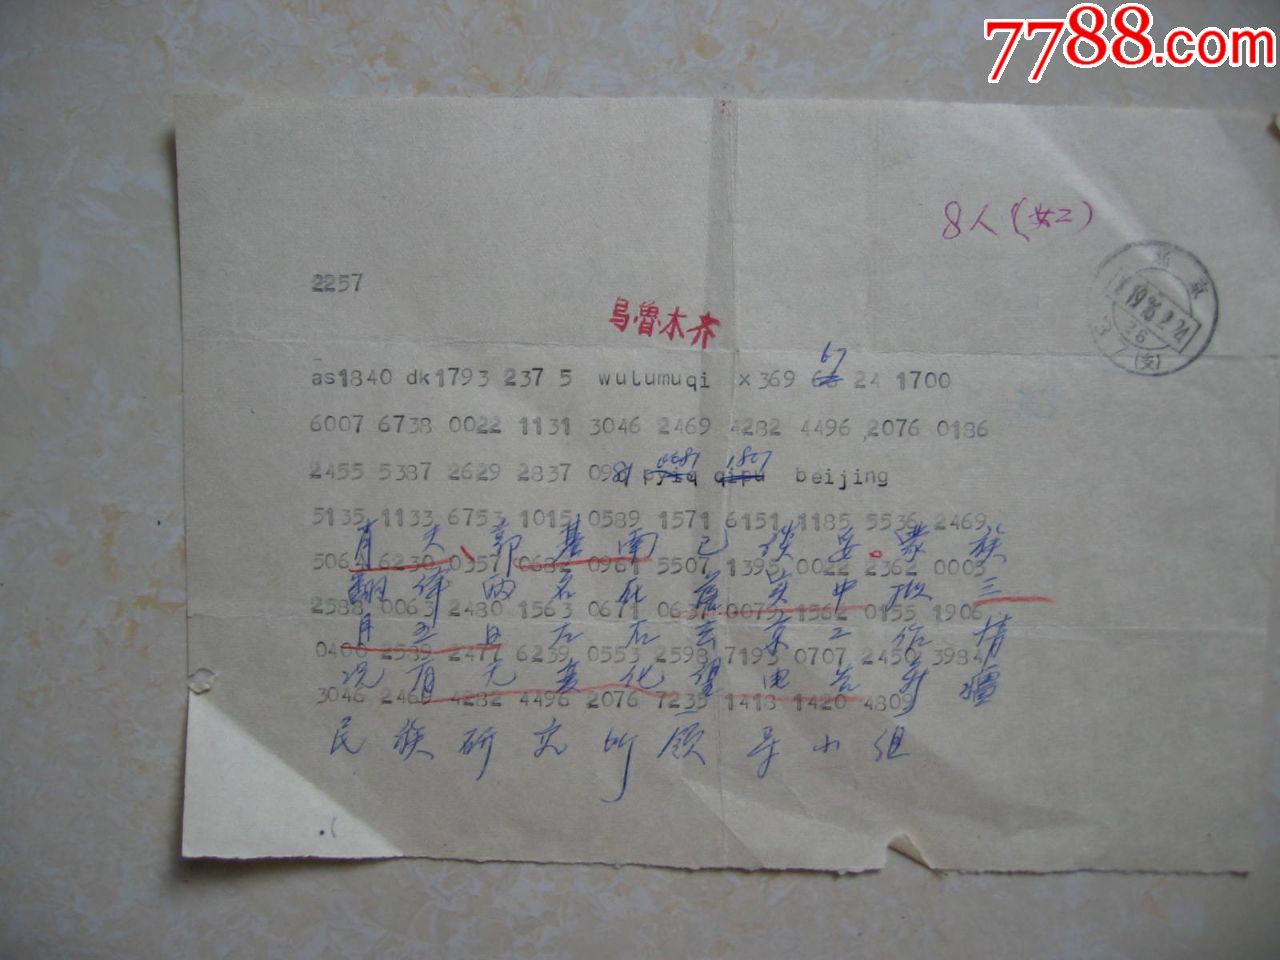 7788.com
8人(女二)
2257
乌鲁木齐
北京
67
as1840 dk1793 237 5 wulumuqi x369 24 1700
6007 6738 0022 1131 3046 2469 4282 4496 2076 0186
0681 1807
2455 5387 2629 2837 0981 pyiq qipu beijing
5135 1133 6753 1015 0589 1571 6151 1185 5536 2469
肖夫、郭基南已谈妥。蒙族
5064 6230 0357 0682 0961 5507 1395 0022 2362 0005
翻译两名从落实中拟三
2588 0063 2480 1563 0671 0637 0075 1562 0155 1906
月五日左右去京工作情
0400 2589 2477 6239 0553 2598 7193 0707 2450 3984
况有无变化望电告新疆
3046 2469 4282 4496 2076 7235 1418 1420 4809
民族研究所领导小组